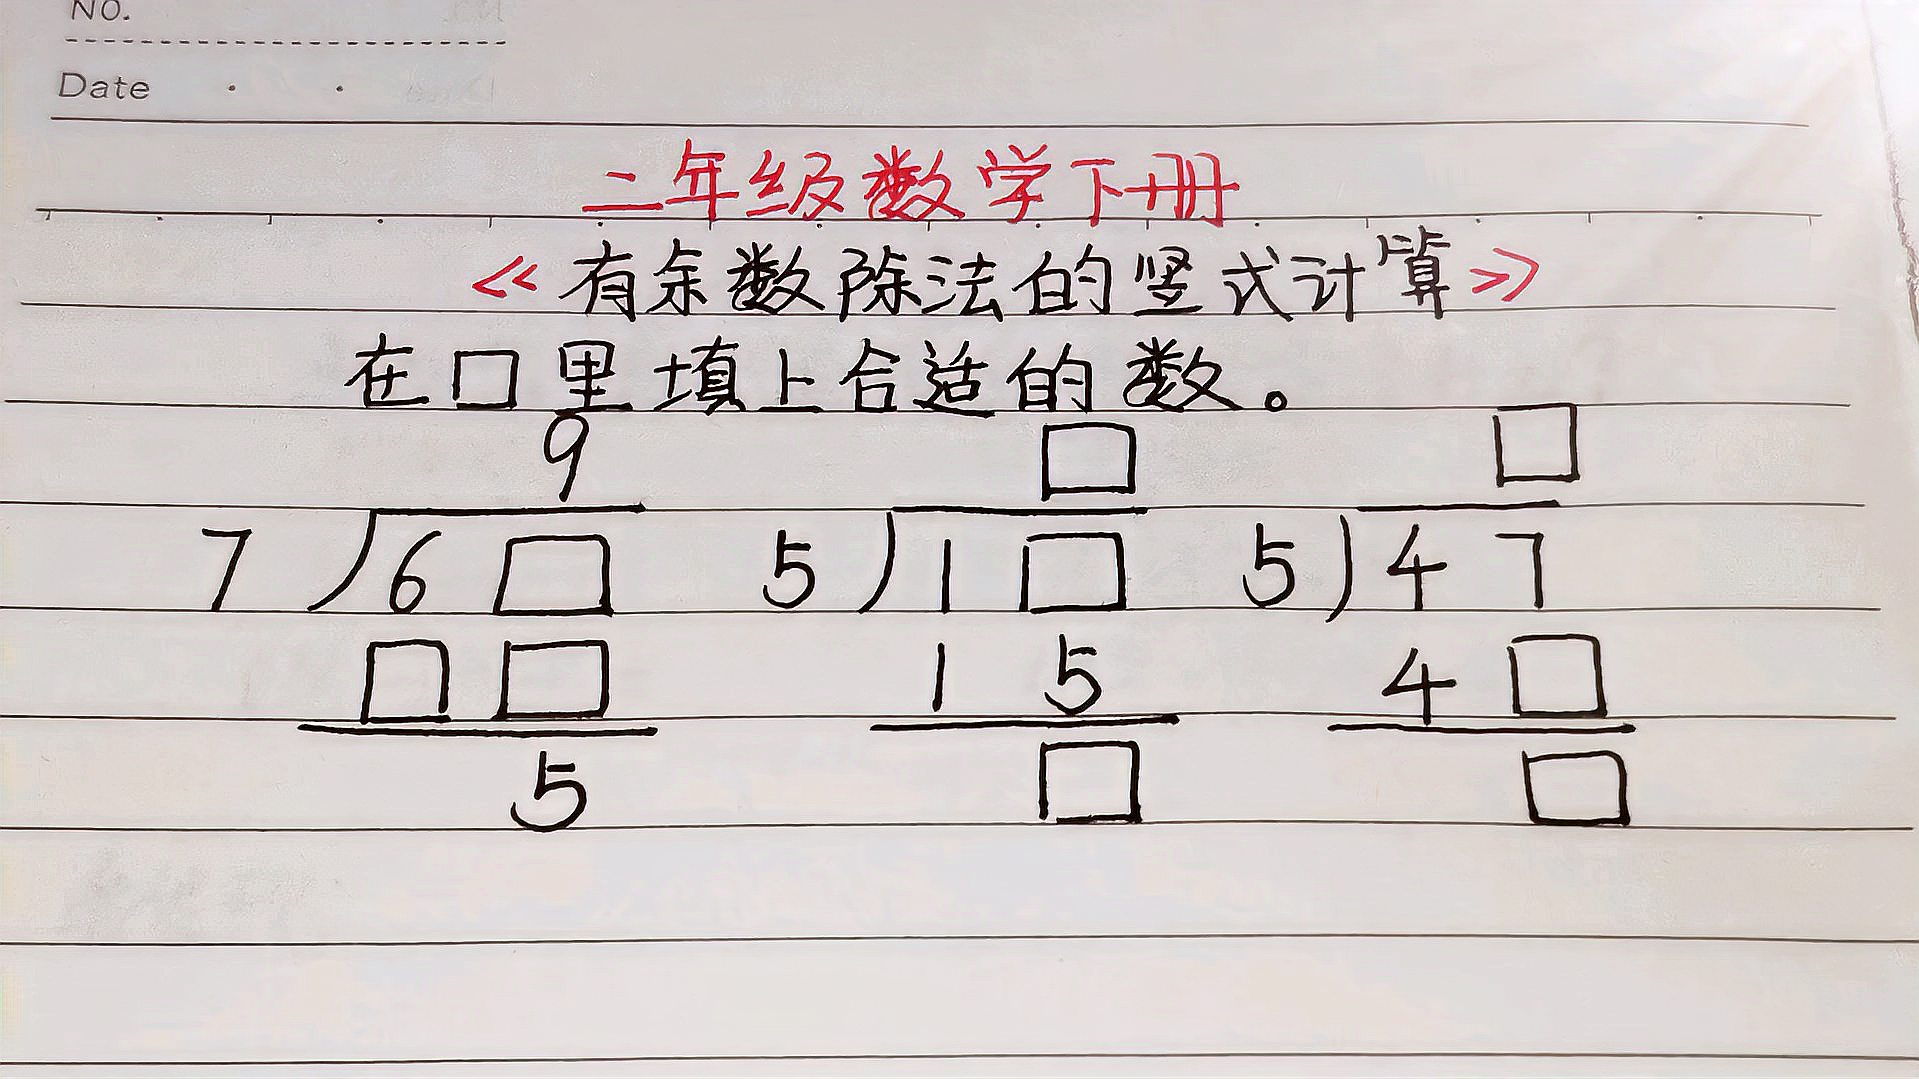 No.
Date . .
二年级数学下册
《有余数除法的竖式计算》
在□里填上合适的数。
9 □ □
7)6□ 5)1□ 5)47
□□ 15 4□
5 □ □